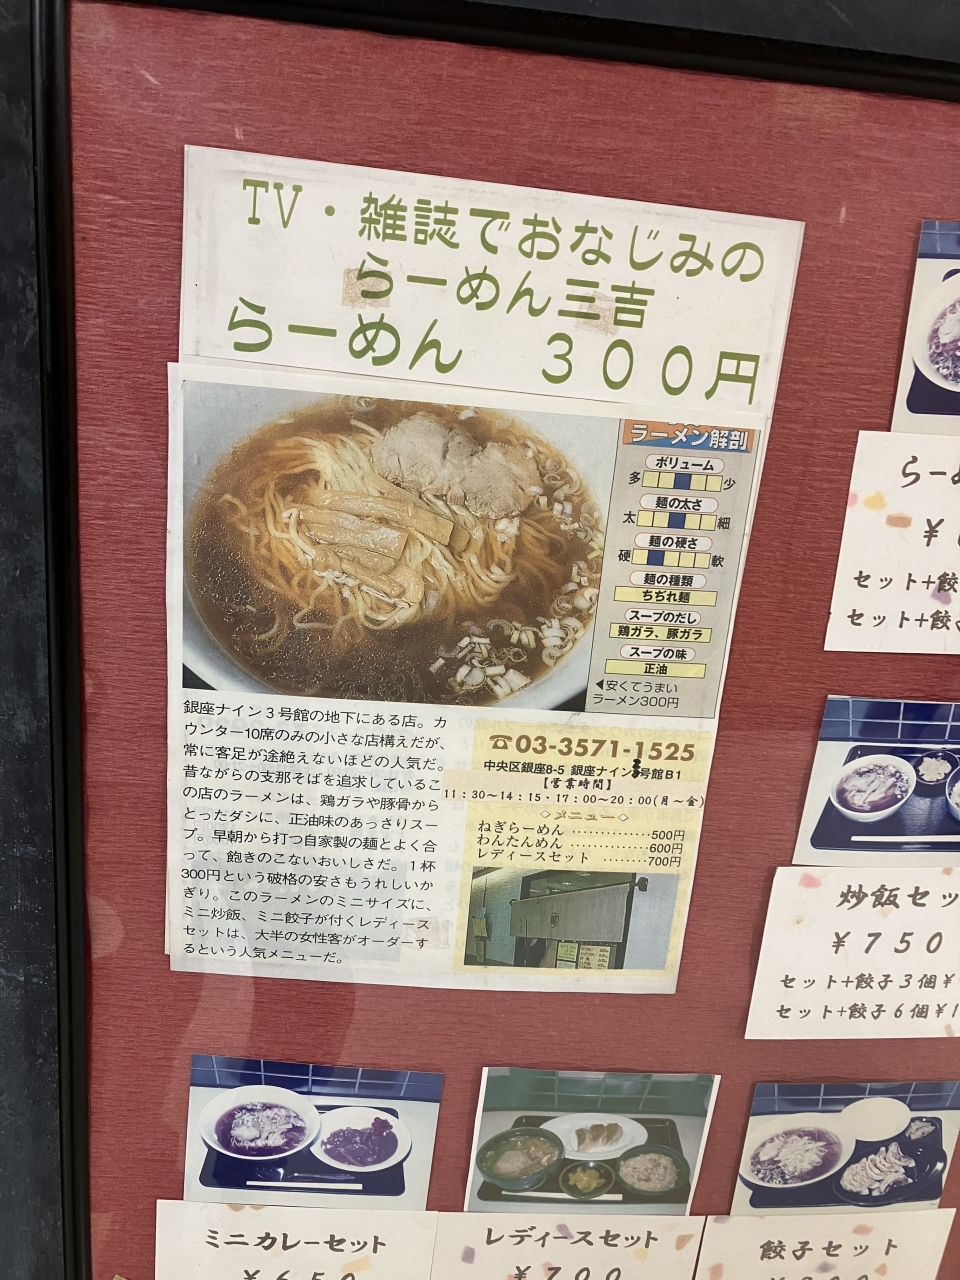 TV・雑誌でおなじみの
らーめん三吉
らーめん　３００円
ラーメン解剖
ボリューム
多 少
麺の太さ
太 細
麺の硬さ
硬 軟
麺の種類
ちぢれ麺
スープのだし
鶏ガラ、豚ガラ
スープの味
正油
◀安くてうまい
ラーメン300円
銀座ナイン３号館の地下にある店。カ
ウンター10席のみの小さな店構えだが、
常に客足が途絶えないほどの人気だ。
昔ながらの支那そばを追求しているこ
の店のラーメンは、鶏ガラや豚骨から
とったダシに、正油味のあっさりスー
プ。早朝から打つ自家製の麺とよく合
って、飽きのこないおいしさだ。１杯
300円という破格の安さもうれしいか
ぎり。このラーメンのミニサイズに、
ミニ炒飯、ミニ餃子が付くレディース
セットは、大半の女性客がオーダーす
るという人気メニューだ。
☎03-3571-1525
中央区銀座8-5 銀座ナイン号館B1
【営業時間】
11：30～14：15・17：00～20：00(月～金)
◇メニュー◇
ねぎらーめん ‥‥‥‥‥500円
わんたんめん ‥‥‥‥‥600円
レディースセット ‥‥‥700円
らー
￥
セット+餃
セット+餃
炒飯セッ
￥７５０
セット+餃子３個￥
セット+餃子６個￥1
ミニカレーセット
￥６５０
レディースセット
￥７００
餃子セット